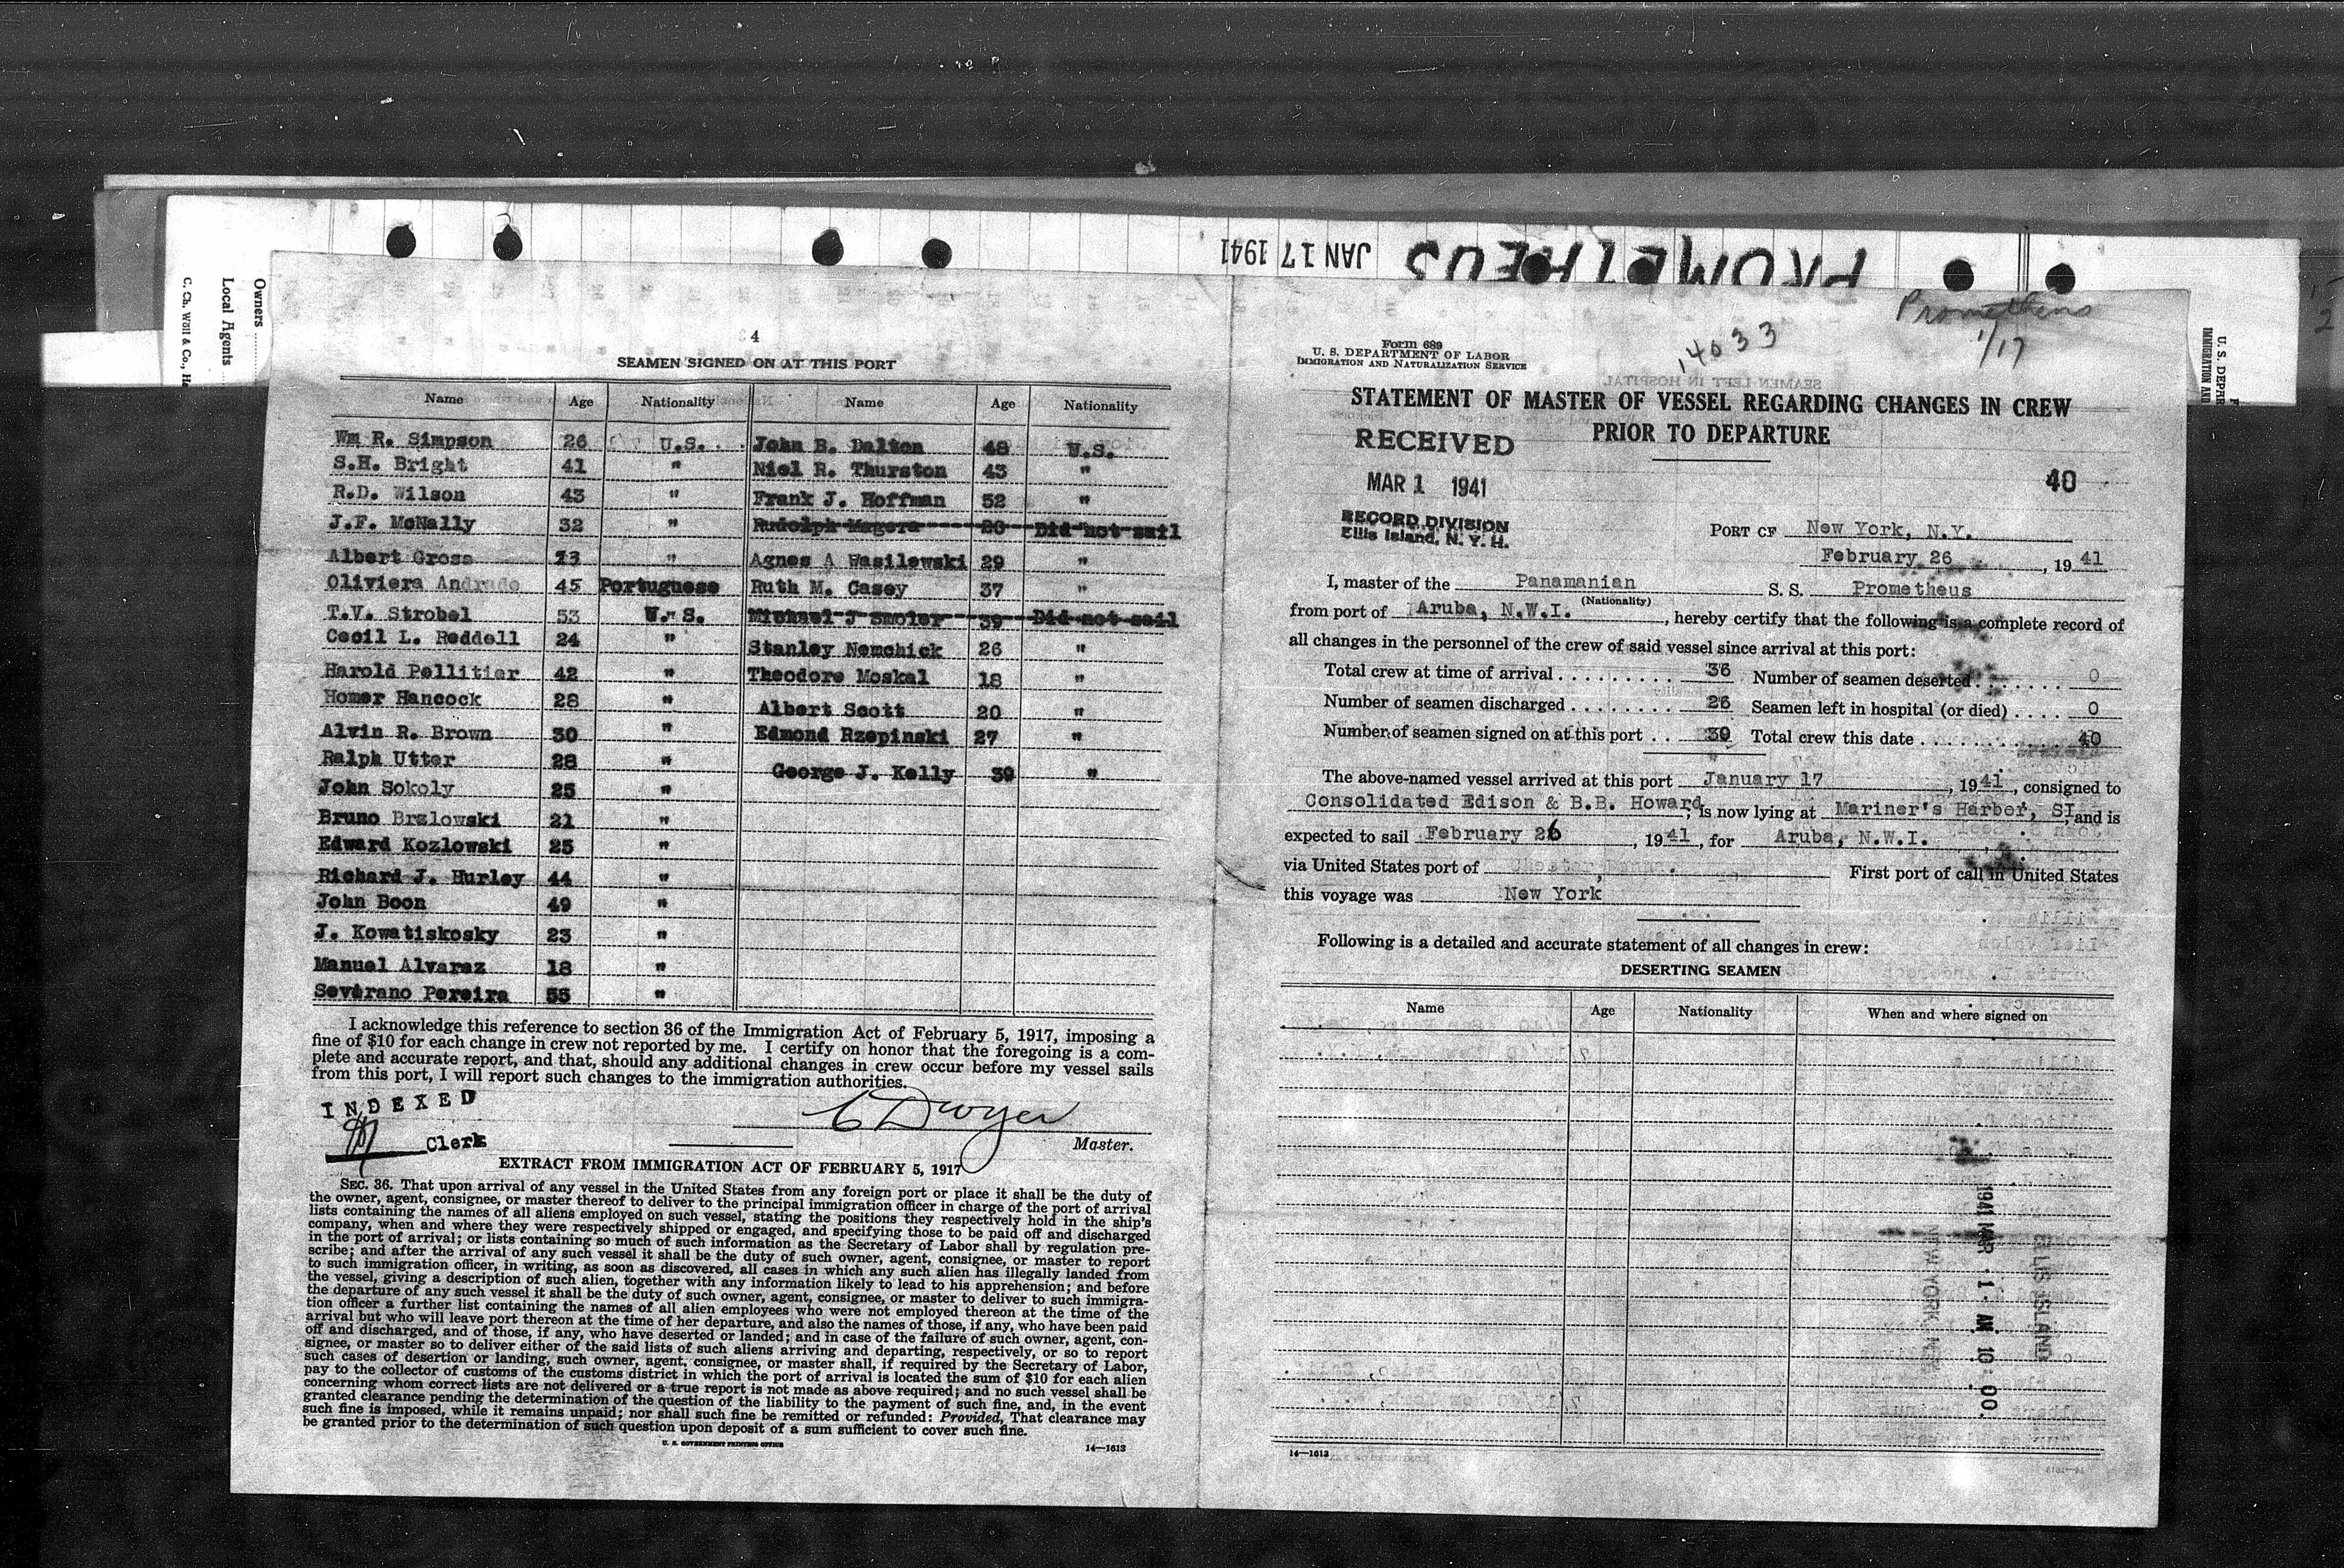 JAN 17 1941 PROMETHEUS
Owners
Local Agents
C. Ch. Wall & Co.,
4
SEAMEN SIGNED ON AT THIS PORT
Name Age Nationality Name Age Nationality
Wm R. Simpson 26 U.S. John B. Dalton 48 U.S.
S.H. Bright 41 " Niel R. Thurston 43 "
R.D. Wilson 43 " Frank J. Hoffman 52 "
J.F. McNally 32 " Rudolph Magera 20 Did not sail
Albert Gross 23 " Agnes A Wasilewski 29 "
Oliviera Andrade 45 Portuguese Ruth M. Casey 37 "
T.V. Strobel 53 U. S. Michael J Smoler 39 Did not sail
Cecil L. Reddell 24 " Stanley Nemchick 26 "
Harold Pellitier 42 " Theodore Moskal 18 "
Homer Hancock 28 " Albert Scott 20 "
Alvin R. Brown 30 " Edmond Rzepinski 27 "
Ralph Utter 28 " George J. Kelly 39 "
John Sokoly 25 "
Bruno Brzlowski 21 "
Edward Kozlowski 25 "
Richard J. Hurley 44 "
John Boon 49 "
J. Kowatiskosky 23 "
Manuel Alvarez 18 "
Severano Pereira 55 "
I acknowledge this reference to section 36 of the Immigration Act of February 5, 1917, imposing a
fine of $10 for each change in crew not reported by me. I certify on honor that the foregoing is a com-
plete and accurate report, and that, should any additional changes in crew occur before my vessel sails
from this port, I will report such changes to the immigration authorities.
INDEXED
Clerk
C Dwyer
Master.
EXTRACT FROM IMMIGRATION ACT OF FEBRUARY 5, 1917
SEC. 36. That upon arrival of any vessel in the United States from any foreign port or place it shall be the duty of
the owner, agent, consignee, or master thereof to deliver to the principal immigration officer in charge of the port of arrival
lists containing the names of all aliens employed on such vessel, stating the positions they respectively hold in the ship's
company, when and where they were respectively shipped or engaged, and specifying those to be paid off and discharged
in the port of arrival; or lists containing so much of such information as the Secretary of Labor shall by regulation pre-
scribe; and after the arrival of any such vessel it shall be the duty of such owner, agent, consignee, or master to report
to such immigration officer, in writing, as soon as discovered, all cases in which any such alien has illegally landed from
the vessel, giving a description of such alien, together with any information likely to lead to his apprehension; and before
the departure of any such vessel it shall be the duty of such owner, agent, consignee, or master to deliver to such immigra-
tion officer a further list containing the names of all alien employees who were not employed thereon at the time of the
arrival but who will leave port thereon at the time of her departure, and also the names of those, if any, who have been paid
off and discharged, and of those, if any, who have deserted or landed; and in case of the failure of such owner, agent, con-
signee, or master so to deliver either of the said lists of such aliens arriving and departing, respectively, or so to report
such cases of desertion or landing, such owner, agent, consignee, or master shall, if required by the Secretary of Labor,
pay to the collector of customs of the customs district in which the port of arrival is located the sum of $10 for each alien
concerning whom correct lists are not delivered or a true report is not made as above required; and no such vessel shall be
granted clearance pending the determination of the question of the liability to the payment of such fine, and, in the event
such fine is imposed, while it remains unpaid; nor shall such fine be remitted or refunded: Provided, That clearance may
be granted prior to the determination of such question upon deposit of a sum sufficient to cover such fine.
U. S. GOVERNMENT PRINTING OFFICE 14—1613
Prometheus
1/17
14033
Form 689
U. S. DEPARTMENT OF LABOR
IMMIGRATION AND NATURALIZATION SERVICE
STATEMENT OF MASTER OF VESSEL REGARDING CHANGES IN CREW
PRIOR TO DEPARTURE
RECEIVED
MAR 1 1941
RECORD DIVISION
Ellis Island, N. Y. H.
40
PORT OF New York, N.Y.
February 26, 1941
I, master of the Panamanian S. S. Prometheus
(Nationality)
from port of Aruba, N.W.I., hereby certify that the following is a complete record of
all changes in the personnel of the crew of said vessel since arrival at this port:
Total crew at time of arrival 36 Number of seamen deserted 0
Number of seamen discharged 26 Seamen left in hospital (or died) 0
Number of seamen signed on at this port 30 Total crew this date 40
The above-named vessel arrived at this port January 17, 1941, consigned to
Consolidated Edison & B.B. Howard, is now lying at Mariner's Harbor, SI, and is
expected to sail February 26, 1941, for Aruba, N.W.I.
via United States port of First port of call in United States
this voyage was New York
Following is a detailed and accurate statement of all changes in crew:
DESERTING SEAMEN
Name Age Nationality When and where signed on
1941 MAR 1 AM 10 00
ELLIS ISLAND
NEW YORK
14—1613
U. S. DEPAR
IMMIGRATION AND